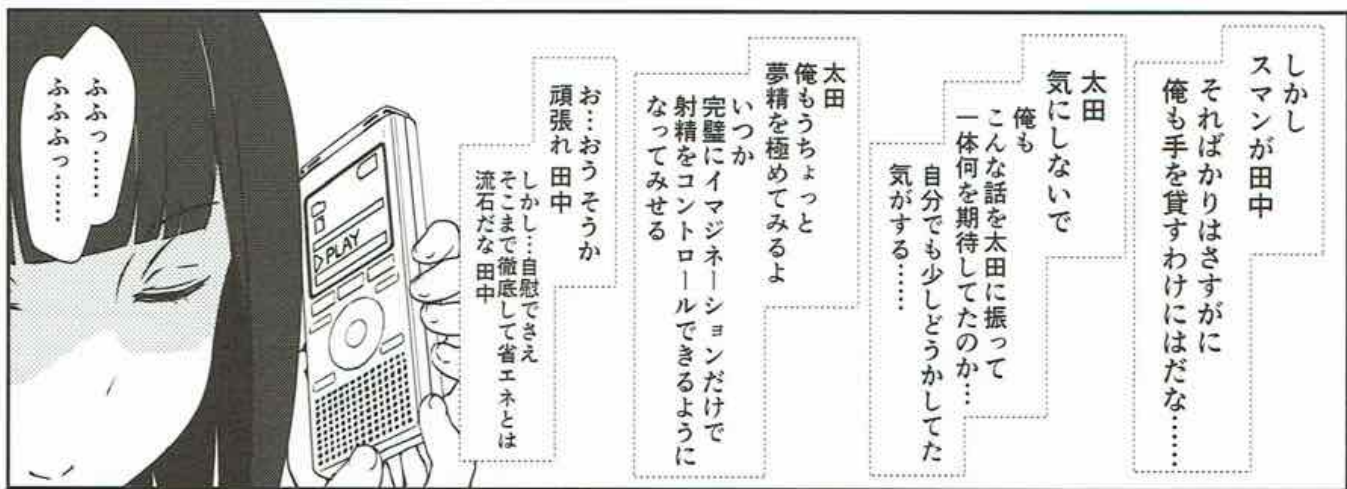 しかし
スマンが田中
そればかりはさすがに
俺も手を貸すわけにはだな……
太田
気にしないで
俺も
こんな話を太田に振って
一体何を期待してたのか…
自分でも少しどうかしてた
気がする……
太田
俺もうちょっと
夢精を極めてみるよ
いつか
完璧にイマジネーションだけで
射精をコントロールできるように
なってみせる
お…おう そうか
頑張れ 田中
しかし…自慰でさえ
そこまで徹底して省エネとは
流石だな 田中
▷PLAY
ふふっ……
ふふふっ……